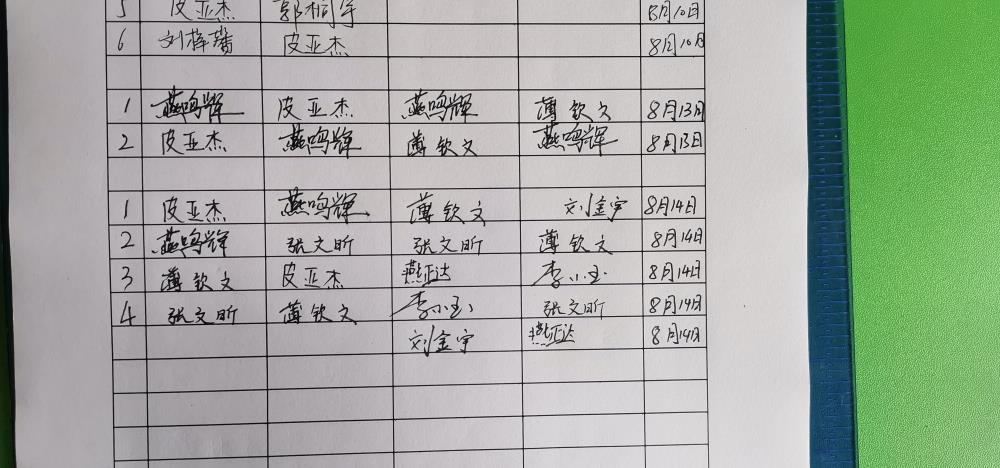 5 皮亚杰 郭桐宇 8月10日
6 刘梓藩 皮亚杰 8月10日
1 燕鸣辉 皮亚杰 燕鸣辉 薄钦文 8月13日
2 皮亚杰 燕鸣辉 薄钦文 燕鸣辉 8月13日
1 皮亚杰 燕鸣辉 薄钦文 刘金宇 8月14日
2 燕鸣辉 张文昕 张文昕 薄钦文 8月14日
3 薄钦文 皮亚杰 燕正达 李小玉 8月14日
4 张文昕 薄钦文 李小玉 张文昕 8月14日
刘金宇 燕正达 8月14日